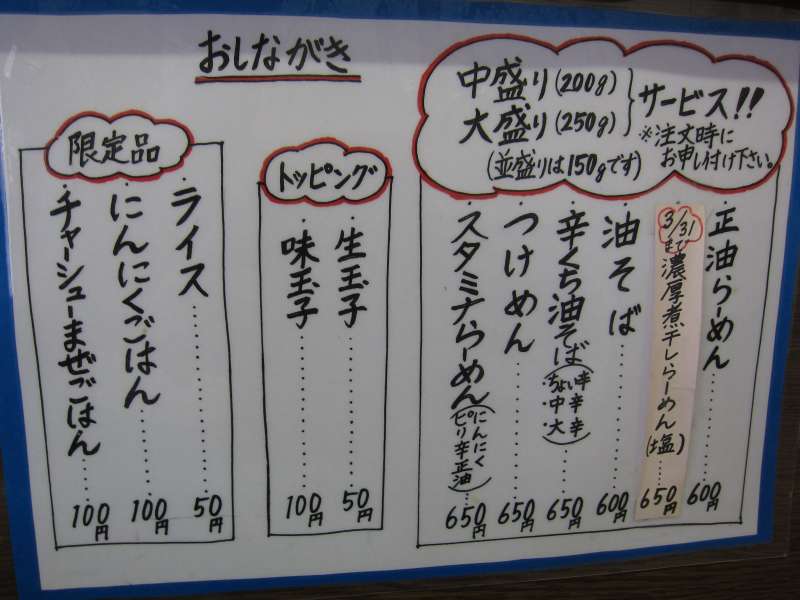 おしながき
中盛り(200g)
大盛り(250g)
サービス!!
※注文時に
お申し付け下さい。
(並盛りは150gです)
正油らーめん……600円
3/31まで
濃厚煮干しらーめん(塩)…650円
油そば……600円
辛くち油そば(・ちょい辛・中辛・大辛)…650円
つけめん……650円
スタミナらーめん(にんにくピリ辛正油)…650円
トッピング
・生玉子……50円
・味玉子……100円
限定品
・ライス……50円
・にんにくごはん……100円
・チャーシューまぜごはん…100円